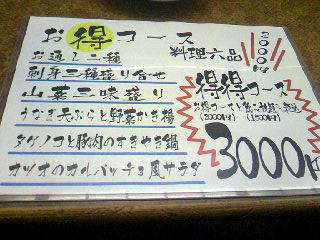 お得コース
料理六品
2000円
お通し二種
刺身三種盛り合せ
山菜三味盛り
うなぎ天ぷらと野菜かき揚
タケノコと豚肉のすきやき鍋
カツオのカルパッチョ風サラダ
得得コース
お得コースと飲み放題
(2000円) (1500円)
3000円